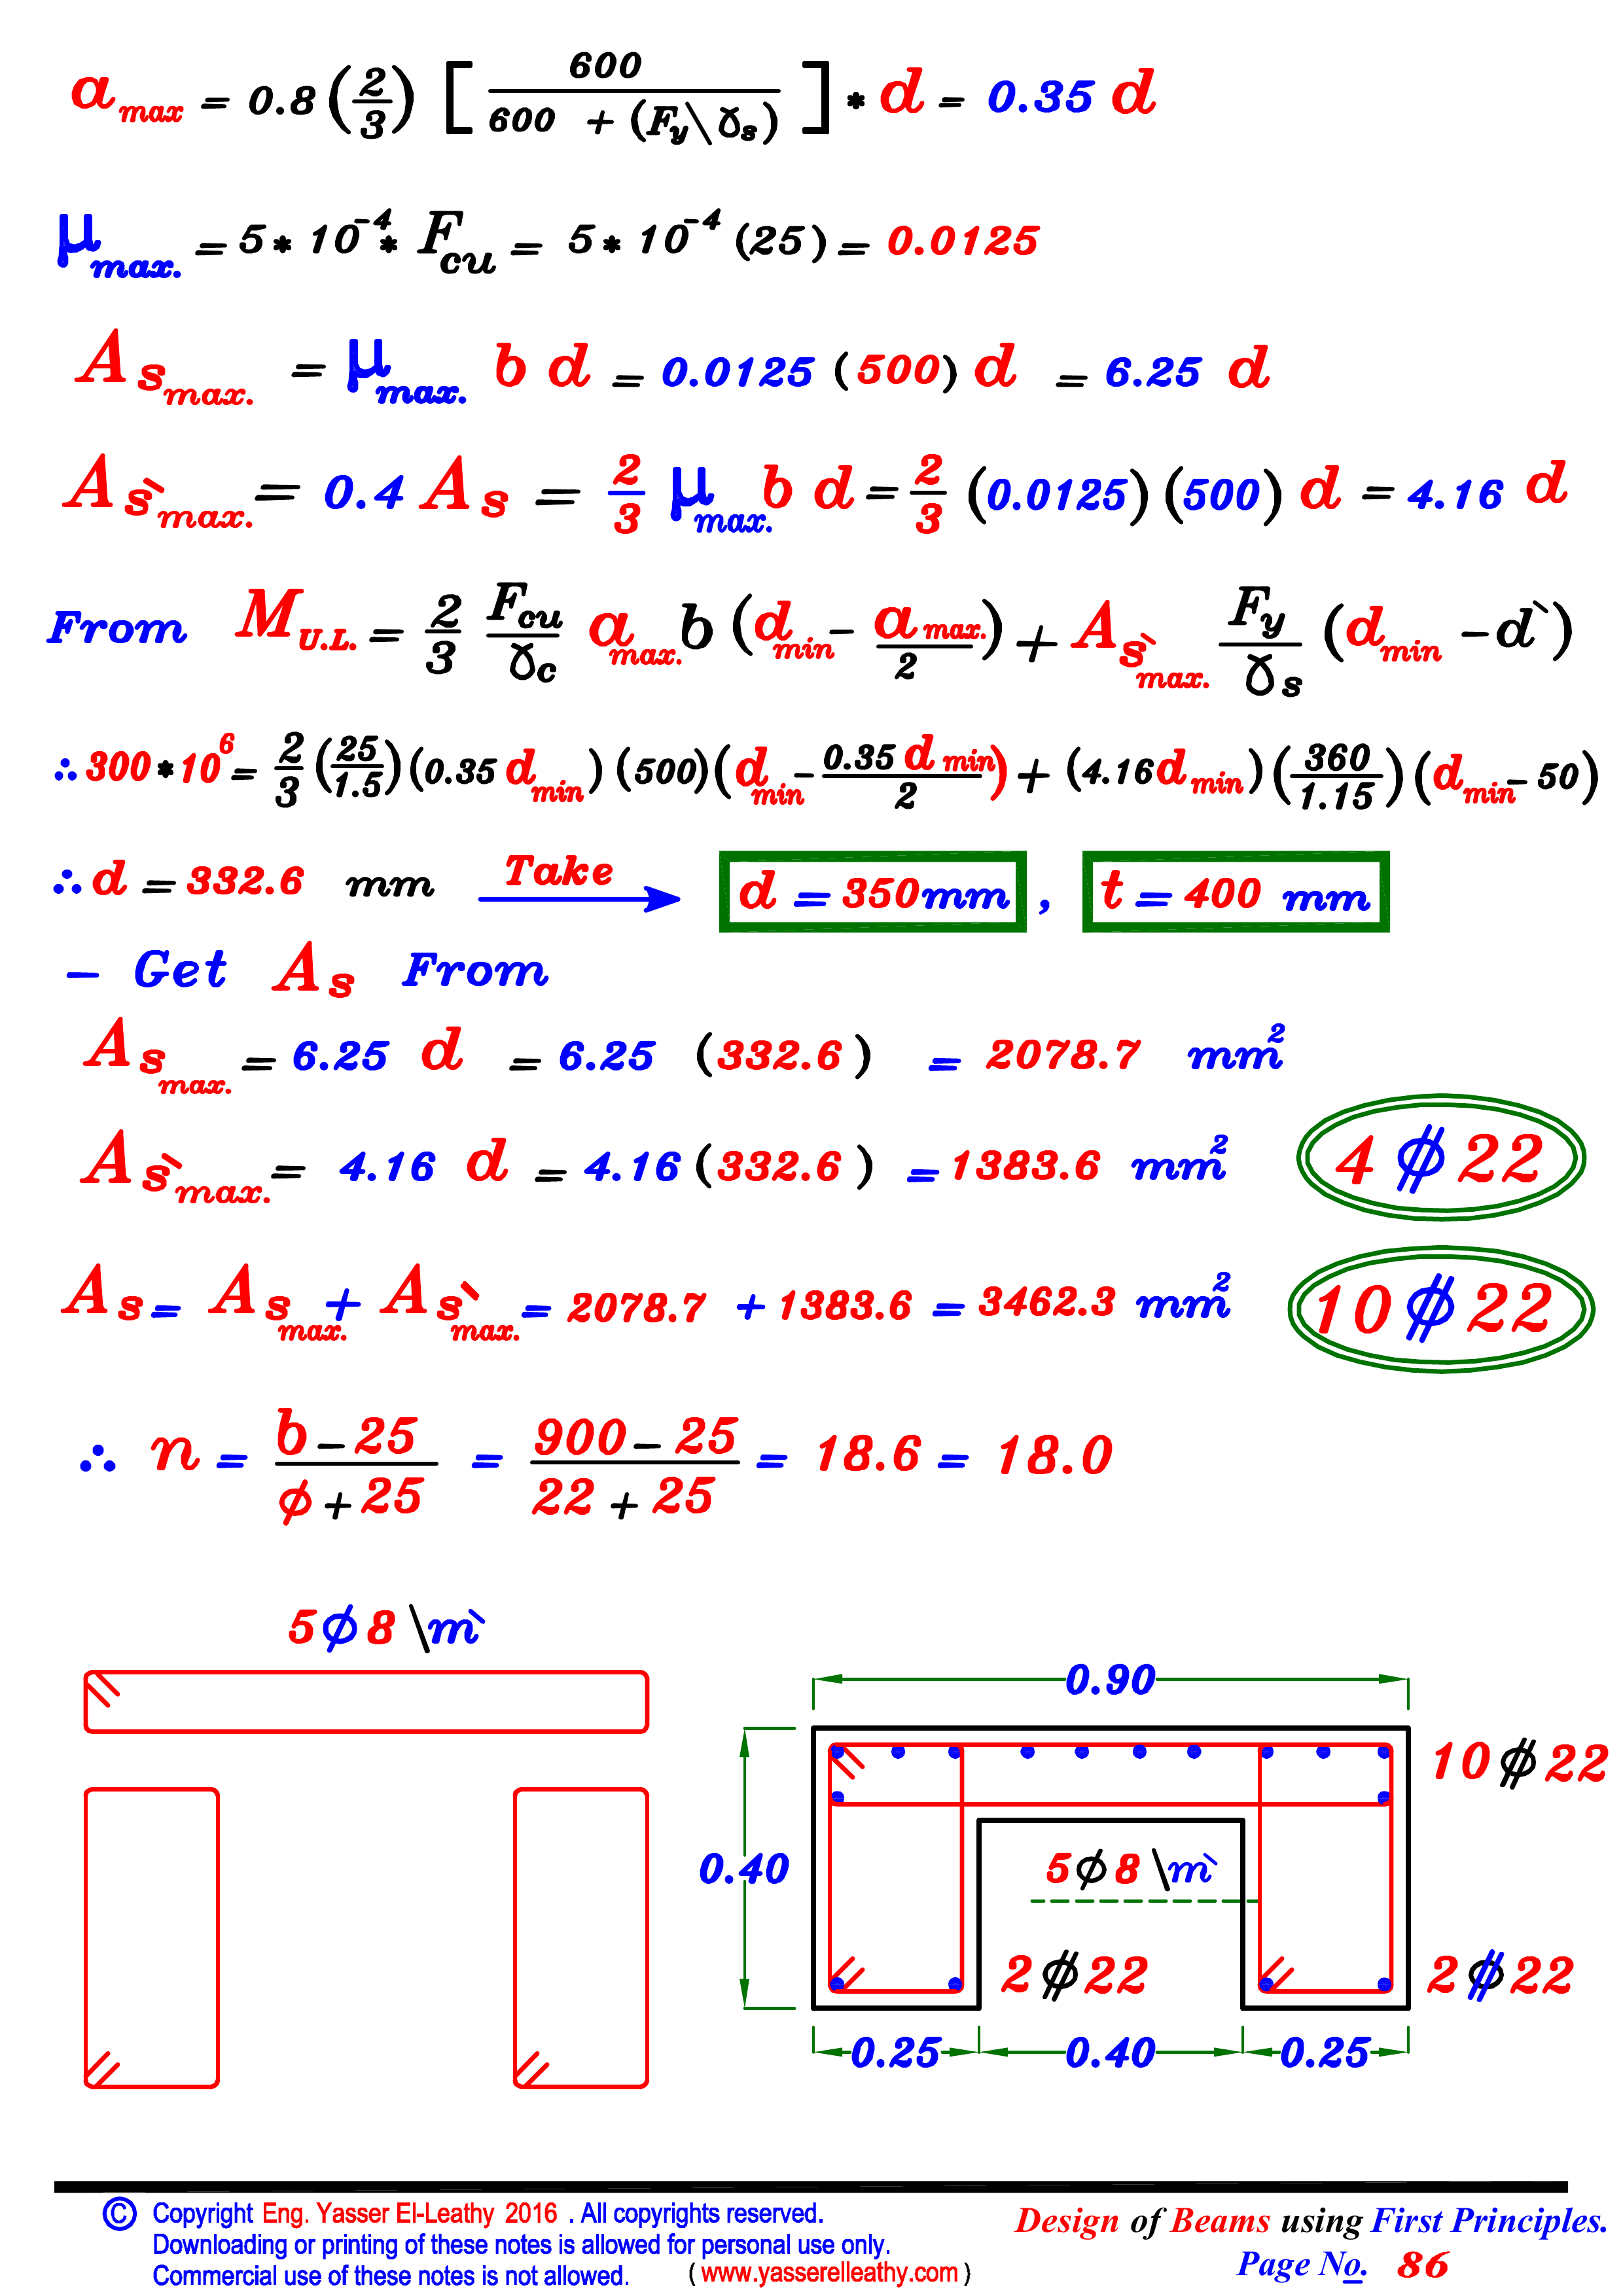 a max = 0.8 (2/3) [ 600 / 600 + (Fy\γs) ] * d = 0.35 d
μ max. = 5 * 10⁻⁴ * Fcu = 5 * 10⁻⁴ (25) = 0.0125
As max. = μ max. b d = 0.0125 (500) d = 6.25 d
As` max. = 0.4 As = 2/3 μ max. b d = 2/3 (0.0125) (500) d = 4.16 d
From M U.L. = 2/3 Fcu/γc a max. b (d min - a max./2) + As` max. Fy/γs (d min - d`)
∴ 300 * 10⁶ = 2/3 (25/1.5) (0.35 d min) (500) (d min - 0.35 d min/2) + (4.16 d min) (360/1.15) (d min - 50)
∴ d = 332.6 mm Take d = 350 mm , t = 400 mm
- Get As From
As max. = 6.25 d = 6.25 (332.6) = 2078.7 mm²
As` max. = 4.16 d = 4.16 (332.6) = 1383.6 mm² 4 ⌀ 22
As = As max. + As` max. = 2078.7 + 1383.6 = 3462.3 mm² 10 ⌀ 22
∴ n = b - 25 / ϕ + 25 = 900 - 25 / 22 + 25 = 18.6 = 18.0
5 ϕ 8 \m`
0.90
10 ⌀ 22
0.40
5 ϕ 8 \m`
2 ⌀ 22
2 ⌀ 22
0.25 0.40 0.25
© Copyright Eng. Yasser El-Leathy 2016 . All copyrights reserved.
Downloading or printing of these notes is allowed for personal use only.
Commercial use of these notes is not allowed. ( www.yasserelleathy.com )
Design of Beams using First Principles.
Page No. 86